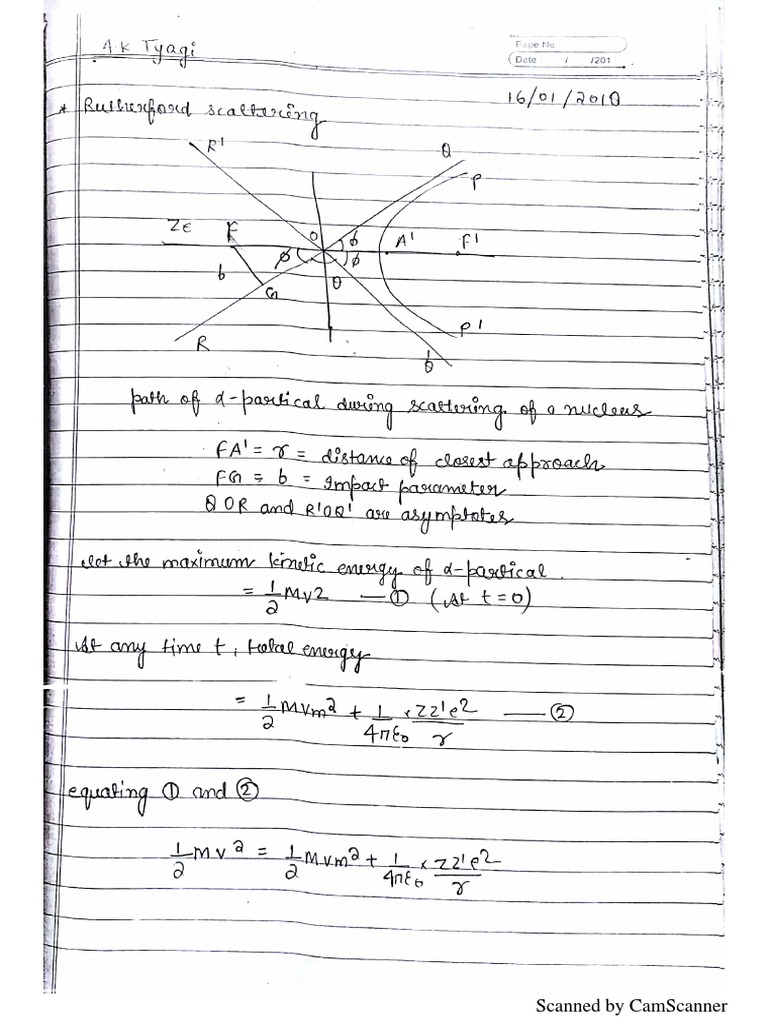 A.K Tyagi
Page No.
Date / /201
16/01/2018
* Rutherford scattering
R' Q
P
Ze F O φ A' F'
φ φ
b G θ
R P'
Q'
path of α-partical during scattering of a nucleus
FA' = r = distance of closest approach
FG = b = Impact parameter
QOR and R'OQ' are asymptotes
let the maximum kinetic energy of α-partical.
= 1/2 Mv2 — ① (At t=0)
At any time t, total energy
= 1/2 Mvm² + 1/4πε₀ × ZZ'e²/r — ②
equating ① and ②
1/2 Mv² = 1/2 Mvm² + 1/4πε₀ × ZZ'e²/r
Scanned by CamScanner